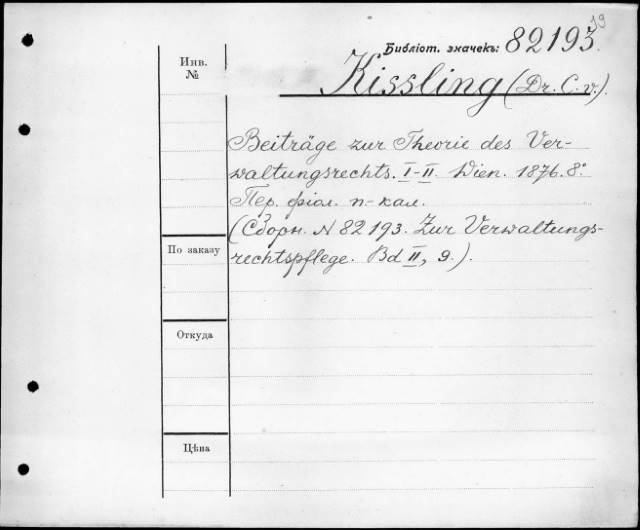 19
Библіот. значекъ: 82193.
Инв.
№
Kissling (Dr. C. v.).
Beiträge zur Theorie des Ver-
waltungsrechts. I-II. Wien. 1876. 8º
Пер. фіол. п-кал.
(Сборн. № 82193. Zur Verwaltungs-
rechtspflege. Bd II, 9.).
По заказу
Откуда
Цѣна